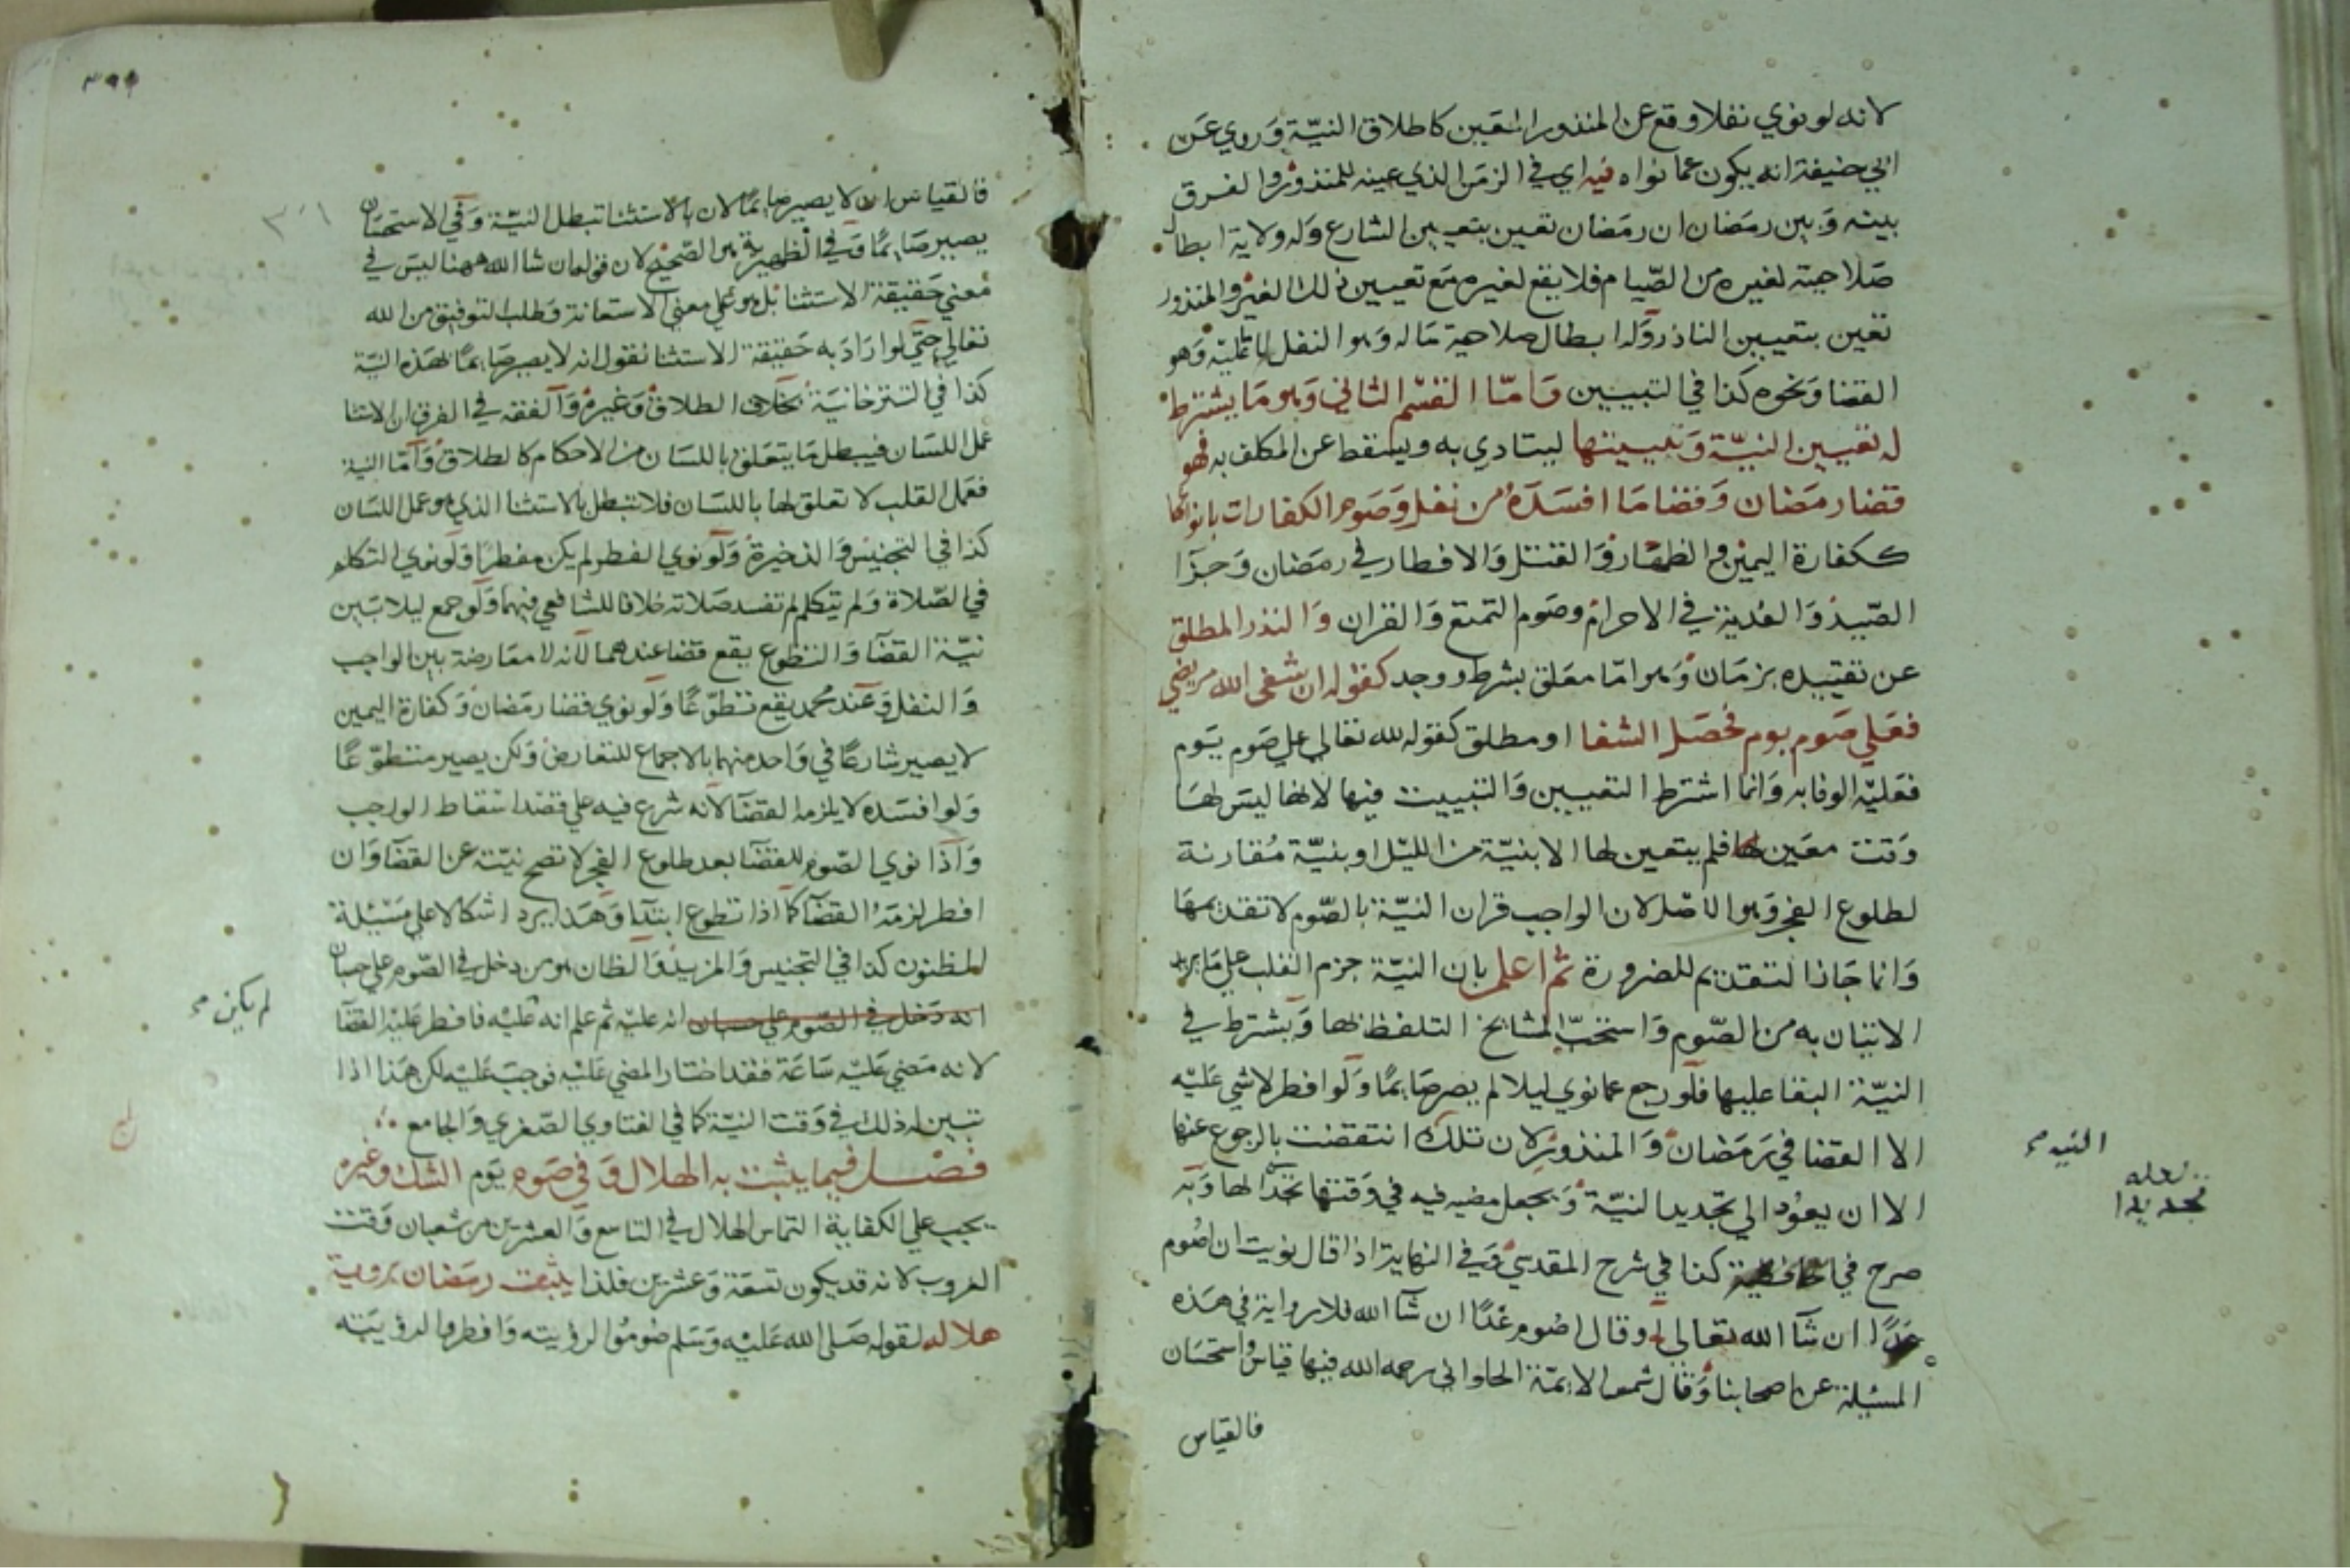 لانه لو نوي نفلا وقع عن المنذور المعين كاطلاق النيّة وروي عن
ابي حنيفة انه يكون عما نواه فيه اي في الزمن الذي عينه للمنذور والفرق
بينه وبين رمضان ان رمضان تعين بتعيين الشارع وله ولاية ابطال
صلاحيته لغيره من الصّيام فلا يقع لغيره مع تعيين ذلك الغير والمنذور
تعين بتعيين الناذر وله ابطال صلاحية ماله وهو النفل لا ما عليه وهو
القضا ونحوه كذا في التبيين وامّا القسم الثاني وهو ما يشترط
له تعيين النيّة وتبييتها ليتادي به ويسقط عن المكلف به فهو
قضا رمضان وقضا ما افسده من نفل وصوم الكفارات بانواعها
ككفارة اليمين والظهار والقتل والافطار في رمضان وجزا
الصّيد والفدية في الاحرام وصوم التمتع والقران والنذر المطلق
عن تقييده بزمان وهو امّا معلق بشرط ووجد كقوله ان شفى الله مريضي
فعلي صوم يوم فحصل الشفا او مطلق كقوله لله تعالي علي صوم يوم
فعليه الوفا به وانما اشترط التعيين والتبييت فيها لانها ليس لها
وقت معين فلم يتعين لها الا بنيّة من الليل او بنيّة مقارنة
لطلوع الفجر وهو الاصل لان الواجب قران النيّة بالصّوم لا تقديمها
وانما جاز التقديم للضرورة ثم اعلم بان النيّة جزم القلب علي ما يريد
الاتيان به من الصّوم واستحبّ المشايخ التلفظ بها ويشترط في
النيّة البقا عليها فلو رجع عما نوي ليلا لم يصر صايمًا ولو افطر لا شي عليه
الا القضا في رمضان والمنذور لان تلك انتقضت بالرجوع عنها
الا ان يعود الي تجديد النيّة ويجعل مضيه فيه في وقتها تجديدا لها وبه
صرح في كذا في شرح المقدسي وفي النهاية اذا قال نويت ان اصوم
غدًا ان شآ الله تعالي او قال اصوم غدًا ان شآ الله فلا رواية في هذه
المسئلة عن اصحابنا وقال شمس الايمّة الحلواني رحمه الله فيها قياس واستحسان
فالقياس
النيه صح
لعله
تجديدا
فالقياس ان لا يصير صايمًا لان بالاستثنا تبطل النيّة وفي الاستحسان
يصير صايمًا وفي الظهيرية هو الصّحيح لان قوله ان شا الله ههنا ليس في
معني حقيقة الاستثنا بل هو علي معني الاستعانة وطلب التوفيق من الله
تعالي حتي لو اراد به حقيقة الاستثنا نقول انه لا يصير صايمًا بهذه النيّة
كذا في التترخانية بخلاف الطلاق وغيره والفقه في الفرق ان الاستثنا
عمل اللسان فيبطل ما يتعلق باللسان من الاحكام كالطلاق وامّا النية
فعمل القلب لا تعلق لها باللسان فلا تبطل بالاستثنا الذي هو عمل اللسان
كذا في التجنيس والذخيرة ولو نوي الفطر لم يكن مفطرًا ولو نوي التكلم
في الصّلاة ولم يتكلم لم تفسد صلاته خلافا للشافعي فيهما ولو جمع ليلا بين
نيّة القضآ والتطوع يقع قضا عندهما لانه لا معارضة بين الواجب
والنفل وعند محمد يقع تطوّعًا ولو نوي قضا رمضان وكفارة اليمين
لا يصير شارعًا في واحد منهما بالاجماع للتعارض ولكن يصير متطوّعًا
ولو افسده لا يلزمه القضآ لانه شرع فيه علي قصد اسقاط الواجب
واذا نوي الصّوم للقضآ بعد طلوع الفجر لا تصح نيّته عن القضآ وان
افطر لزمه القضآ كما اذا تطوع ابتدآ وهذا يرد اشكالا علي مسئلة
المظنون كذا في التجنيس والمزيد والظان هو من دخل في الصّوم علي حسبان
انه دخل في الصّوم علي حسبان انه عليه ثم علم انه عليه فافطر عليه القضآ
لانه مضي عليه ساعة فقد اختار المضي عليه فوجب عليه لكن هذا اذا
تبين له ذلك في وقت النيّة كما في الفتاوي الصّغري والجامع
فصل فيما يثبت به الهلال وفي صوم يوم الشك وغيره
يجب علي الكفاية التماس الهلال في التاسع والعشرين من شعبان وقت
الغروب لانه قد يكون تسعة وعشرين فلذا يثبت رمضان بروية
هلاله لقوله صلى الله عليه وسلم صوموا لرؤيته وافطروا لرؤيته
لم يكن صح